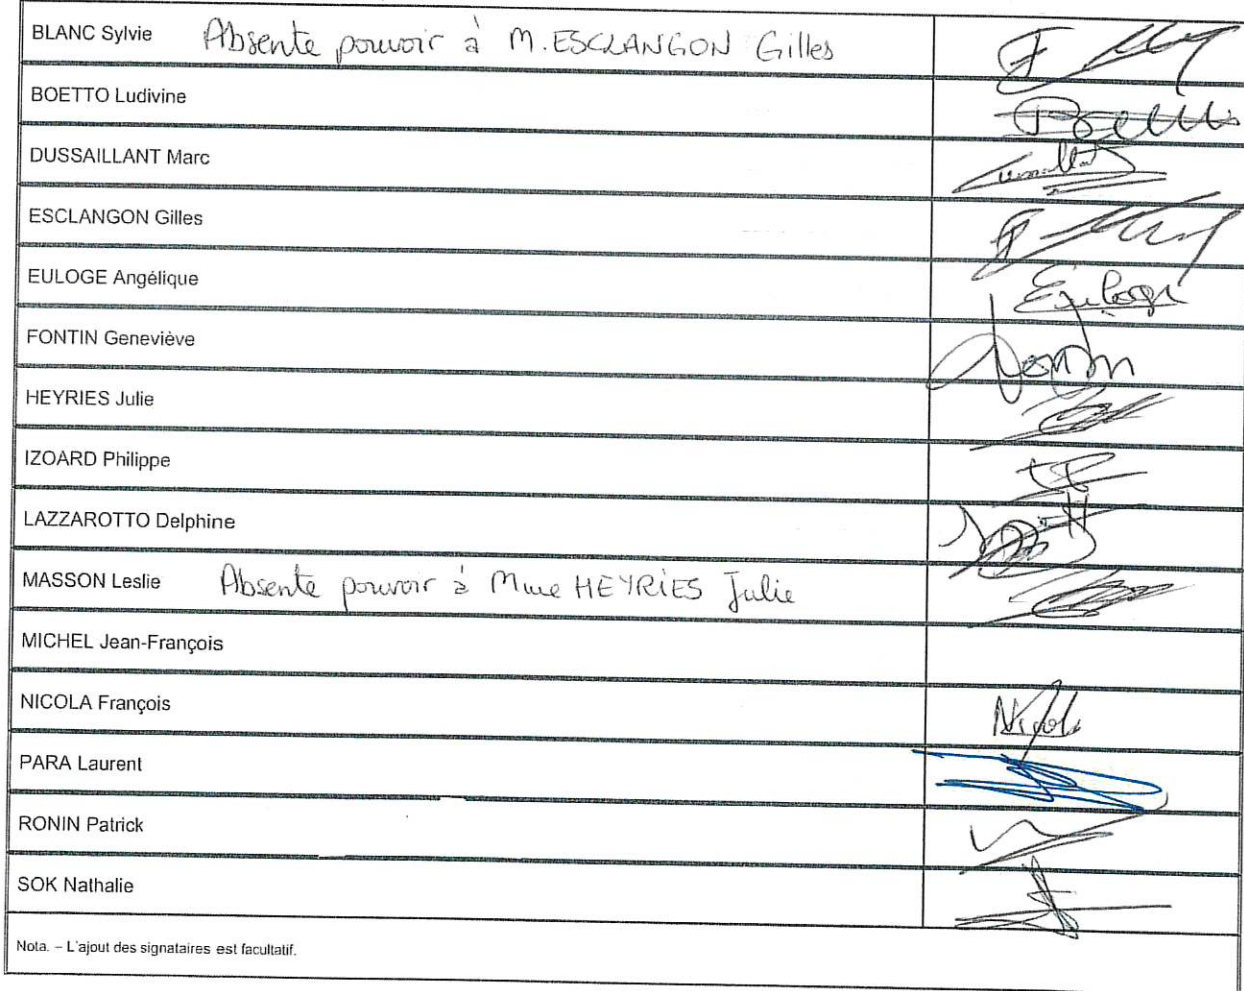 BLANC Sylvie Absente pouvoir à M. ESCLANGON Gilles
BOETTO Ludivine
DUSSAILLANT Marc
ESCLANGON Gilles
EULOGE Angélique
Euloge
FONTIN Geneviève
Fontin
HEYRIES Julie
IZOARD Philippe
LAZZAROTTO Delphine
MASSON Leslie Absente pouvoir à Mme HEYRIES Julie
MICHEL Jean-François
NICOLA François
Nicola
PARA Laurent
RONIN Patrick
SOK Nathalie
Nota. – L'ajout des signataires est facultatif.